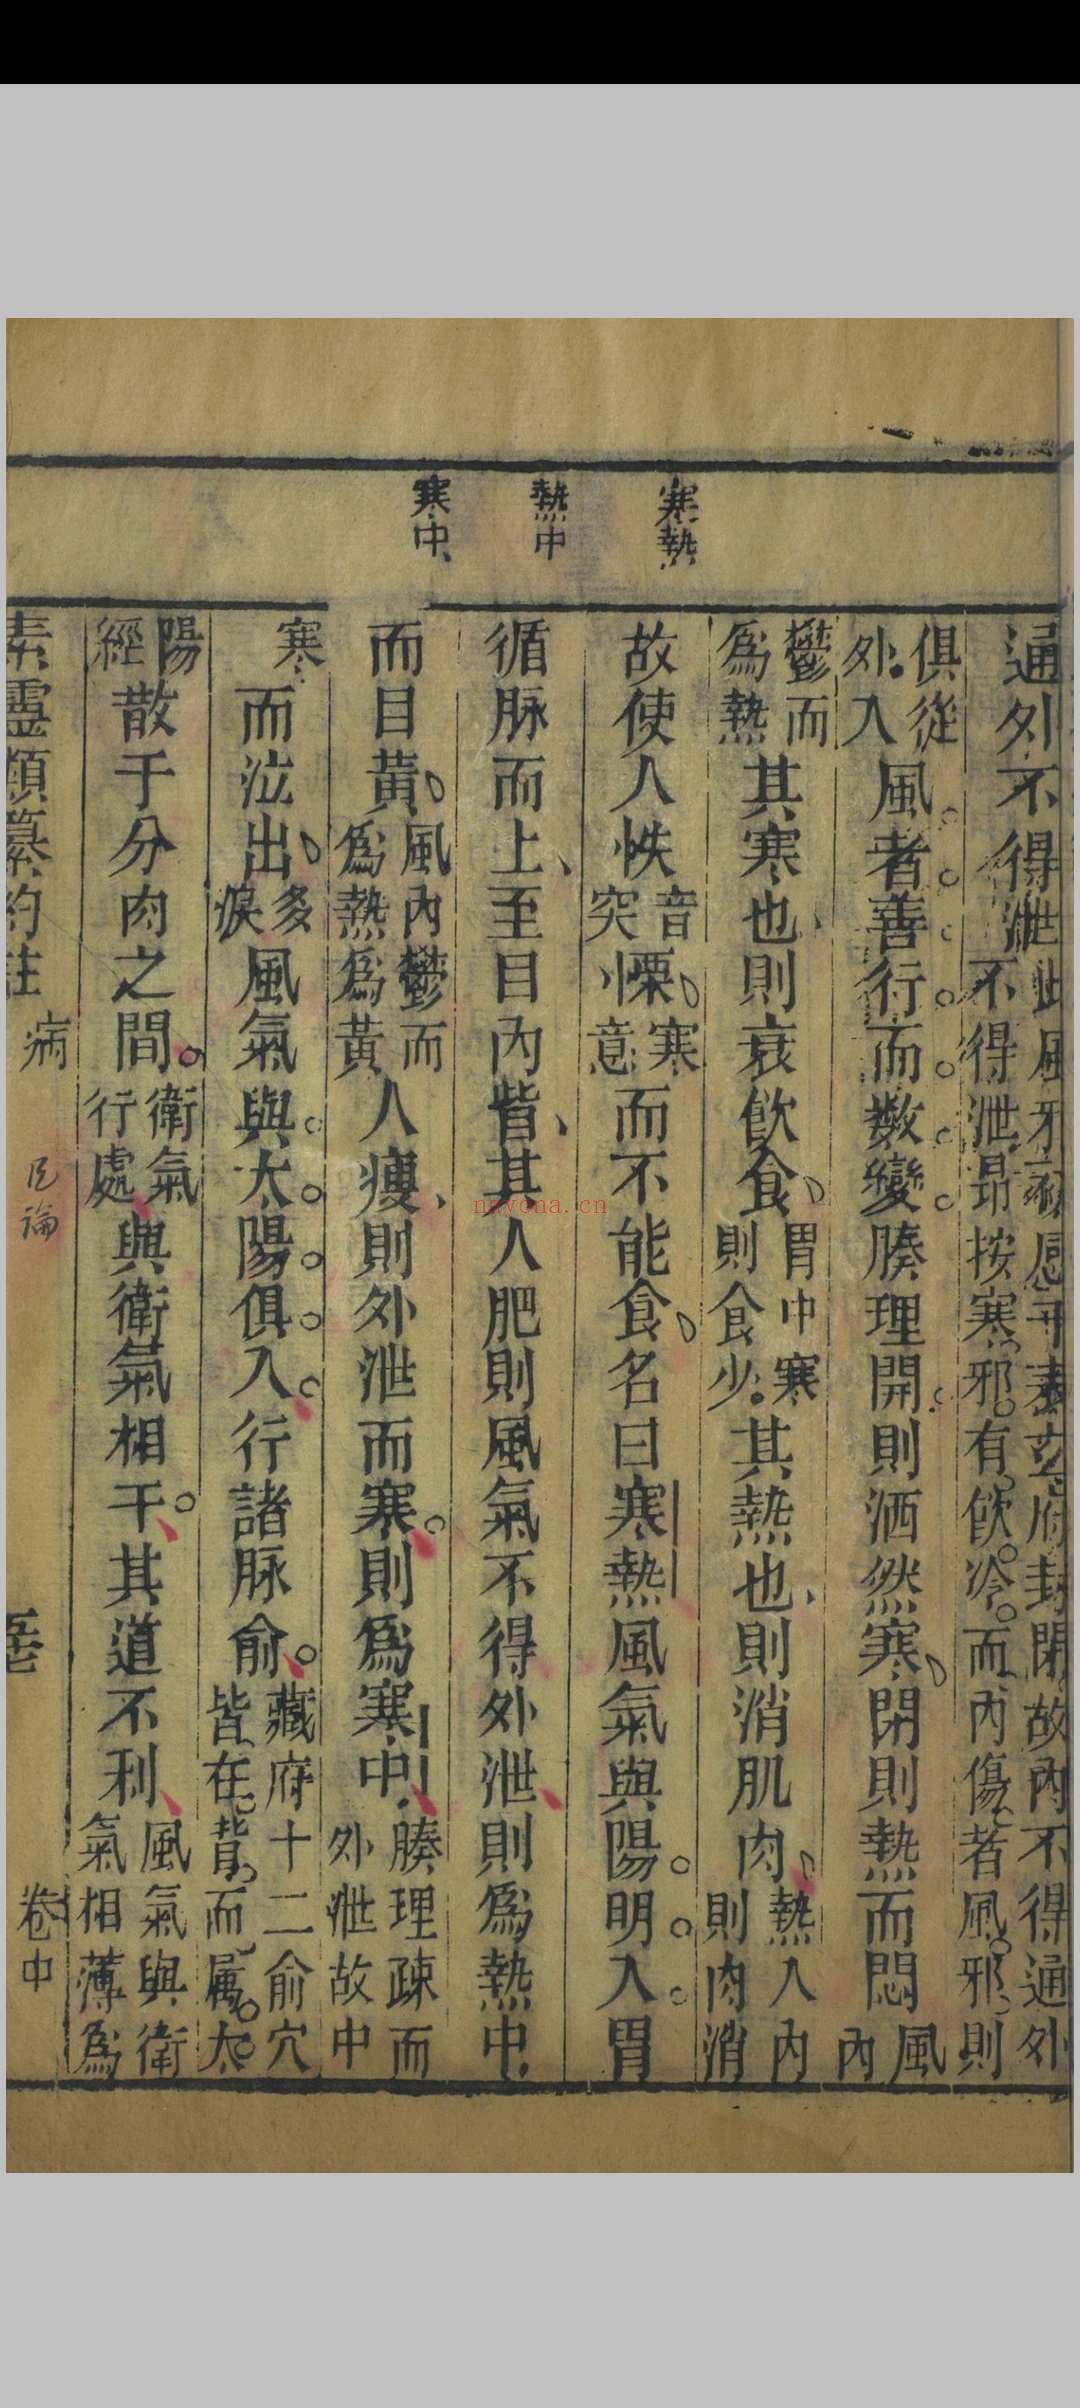 寒熱
熱中
寒中
通外不得泄此風邪于表玄府封閉故內不得通外不得泄昂按寒邪有飲冷而內傷者風邪則
俱從外入風者善行而數變腠理開則洒然寒閉則熱而悶風內
鬱而爲熱其寒也則衰飲食胃中寒則食少其熱也則消肌肉熱入內則肉消
故使人怢音突慄寒意而不能食名曰寒熱風氣與陽明入胃
循脉而上至目內眥其人肥則風氣不得外泄則爲熱中
而目黃風內鬱而爲熱爲黃人瘦則外泄而寒則爲寒中腠理疎而外泄故中
寒而泣出多淚風氣與太陽俱入行諸脉俞藏府十二俞穴皆在背而属太
陽經散于分肉之間衛氣行處與衛氣相干其道不利風氣與衛氣相薄爲
素靈類纂約註 病論 卷中
nnyona.cn